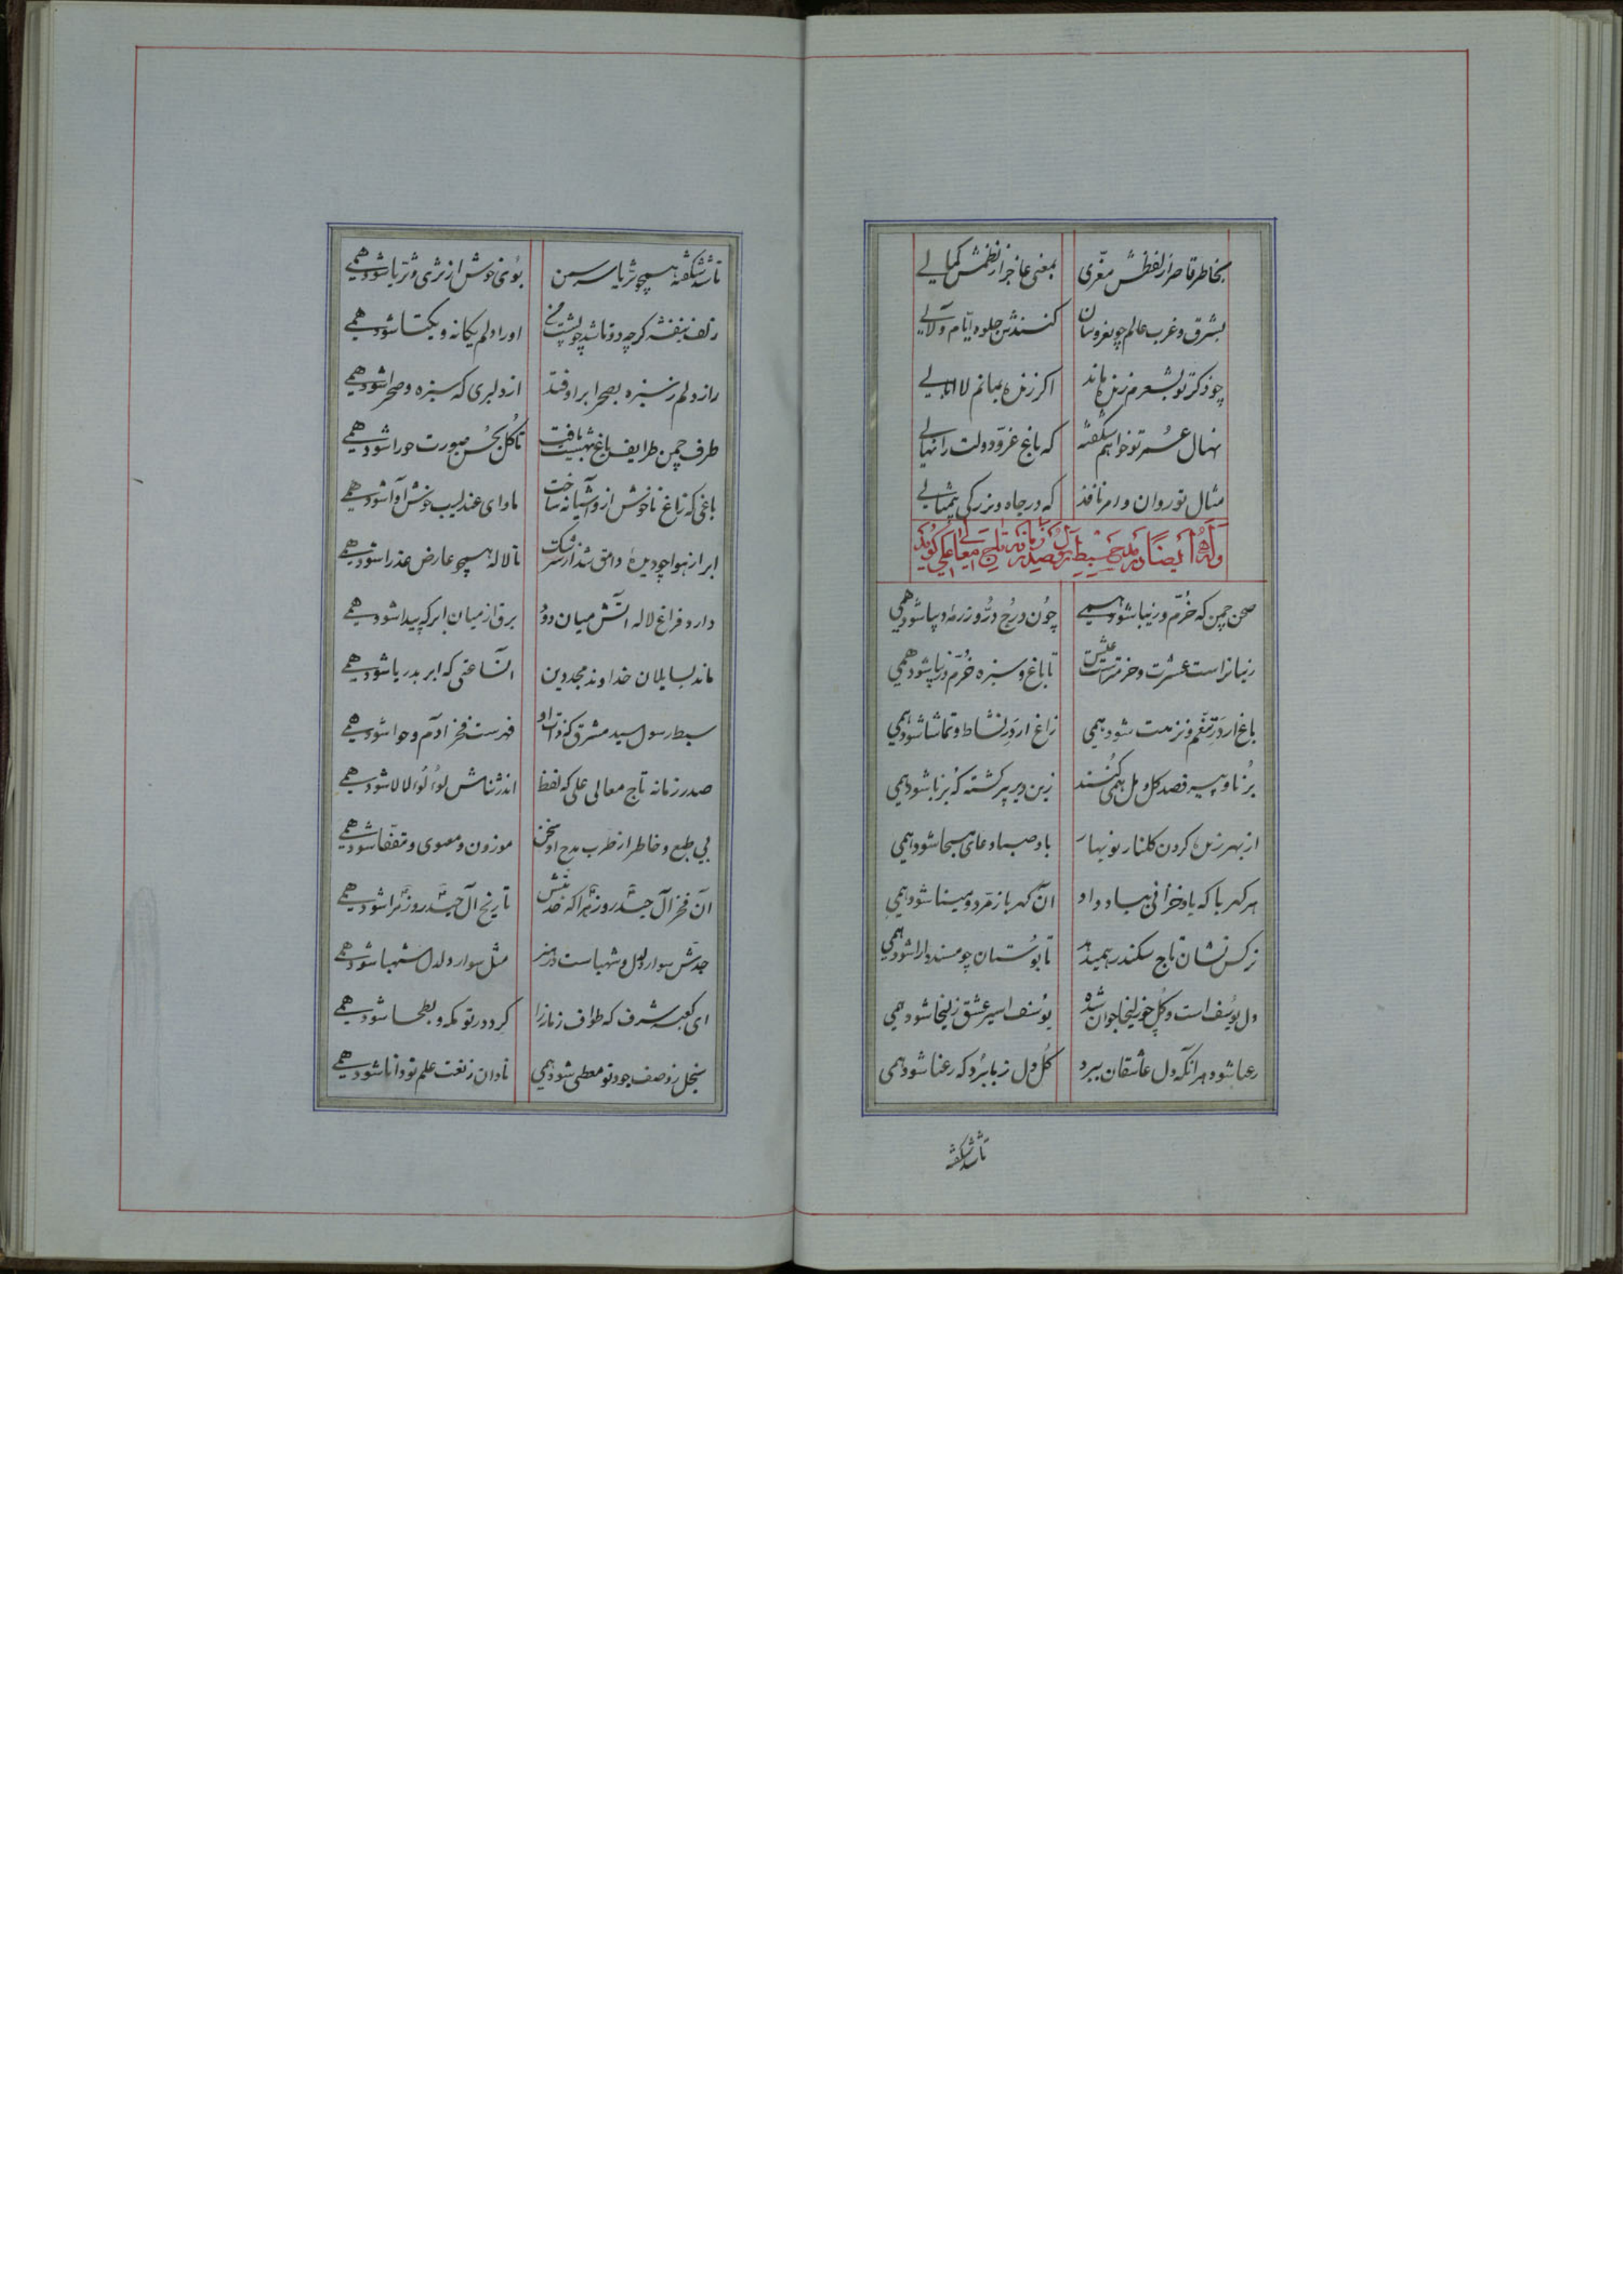 بخاطر قاصر از لفظش معزّی بمعنی عاجز از نظمش کمالی
بشرق و غرب عالم چو نعروسان کنندش جلوه ایّام و لآلی
چو ذکر تو بشعرم زنده ماند اکر زنده بمانم لا ابالی
نهال عمر تو خواهم شکفته که باغ عزّ و دولت را نهالی
مثال تو روان و امر نافذ که در جاه و بزرکی بیمثالی
وله ایضاً در مدح سبط رسول صدر زمانه تاج معالی علی کوید
صحن چمن که خُرّم و زیبا شود همی چون دُرج دُرّ و رزمه دیبا شود همی
زیبا تر است عشرت و خرمتر است عیش تا باغ و سبزه خُرّم و زیبا شود همی
باغ ار در تنعّم و نزهت شود همی زاغ ار در نشاط و تماشا شود همی
بُرنا و پیر قصد کل و مل همی کُنند زین دیر پیر کشته که بُرنا شود همی
از بهر زنده کردن کلنار نوبهار باد صبا دعای مسیحا شود همی
هر کهربا که باد خزانی بباد داد آن کهربا زمرّد و مینا شود همی
نرکس نشان تاج سکندر همیدهد تا بوُستان چو مسند دارا شود همی
دل یوُسف است و کُل چو زلیخا جوان شده یوُسف اسیر عشق زلیخا شود همی
رعنا شود هر آنکه دل عاشقان ببرد کُل دل ز ما ببُرد که رعنا شود همی
تا شد شکفته
تا شد شکفته همچو ثریا سرِ سمن بوُی خوش از ثری و ثریا شود همی
زلف بنفشه کرچه دوتا شد چو پشت من او را دلم یکانه و یکتا شود همی
راز دلم ز سبزه بصحرا بر اوفتد از دلبری که سبزه و صحرا شود همی
طرف چمن طرایف باغ بهشت یافت تا کُل بحُسن صورت حورا شود همی
باغی که زاغ ناخوش ازو آشیانه ساخت ماوای عندلیب خوش آوا شود همی
ابر از هوا چو دیدهٔ وامق شد از سرشک تا لاله همچو عارض عذرا شود همی
دارد فراغ لاله آتش میان دوُد برق از میان ابر که پیدا شود همی
ماند بسایلان خداوند مجد دین آنساعتی که ابر بدریا شود همی
سبط رسول سید مشرق که ذات او فهرست فخر آدم و حوا شود همی
صدر زمانه تاج معالی علی که لفظ اندر ثناش لوُلوُ لالا شود همی
بی طبع و خاطر از طرب مدح او سخن موزون و معنوی و مقفّا شود همی
آن فخر آل حیدر و زهرا که خدمتش تاریخ آل حیدر و زهرا شود همی
جدش سوار دلدل و شهباست در هنر مثل سوار دلدل شهبا شود همی
ای کعبه شرف که طواف زمانه را کرد در تو مکه و بطحا شود همی
بخیل ز وصف جود تو معطی شود همی نادان ز نعت علم تو دانا شود همی